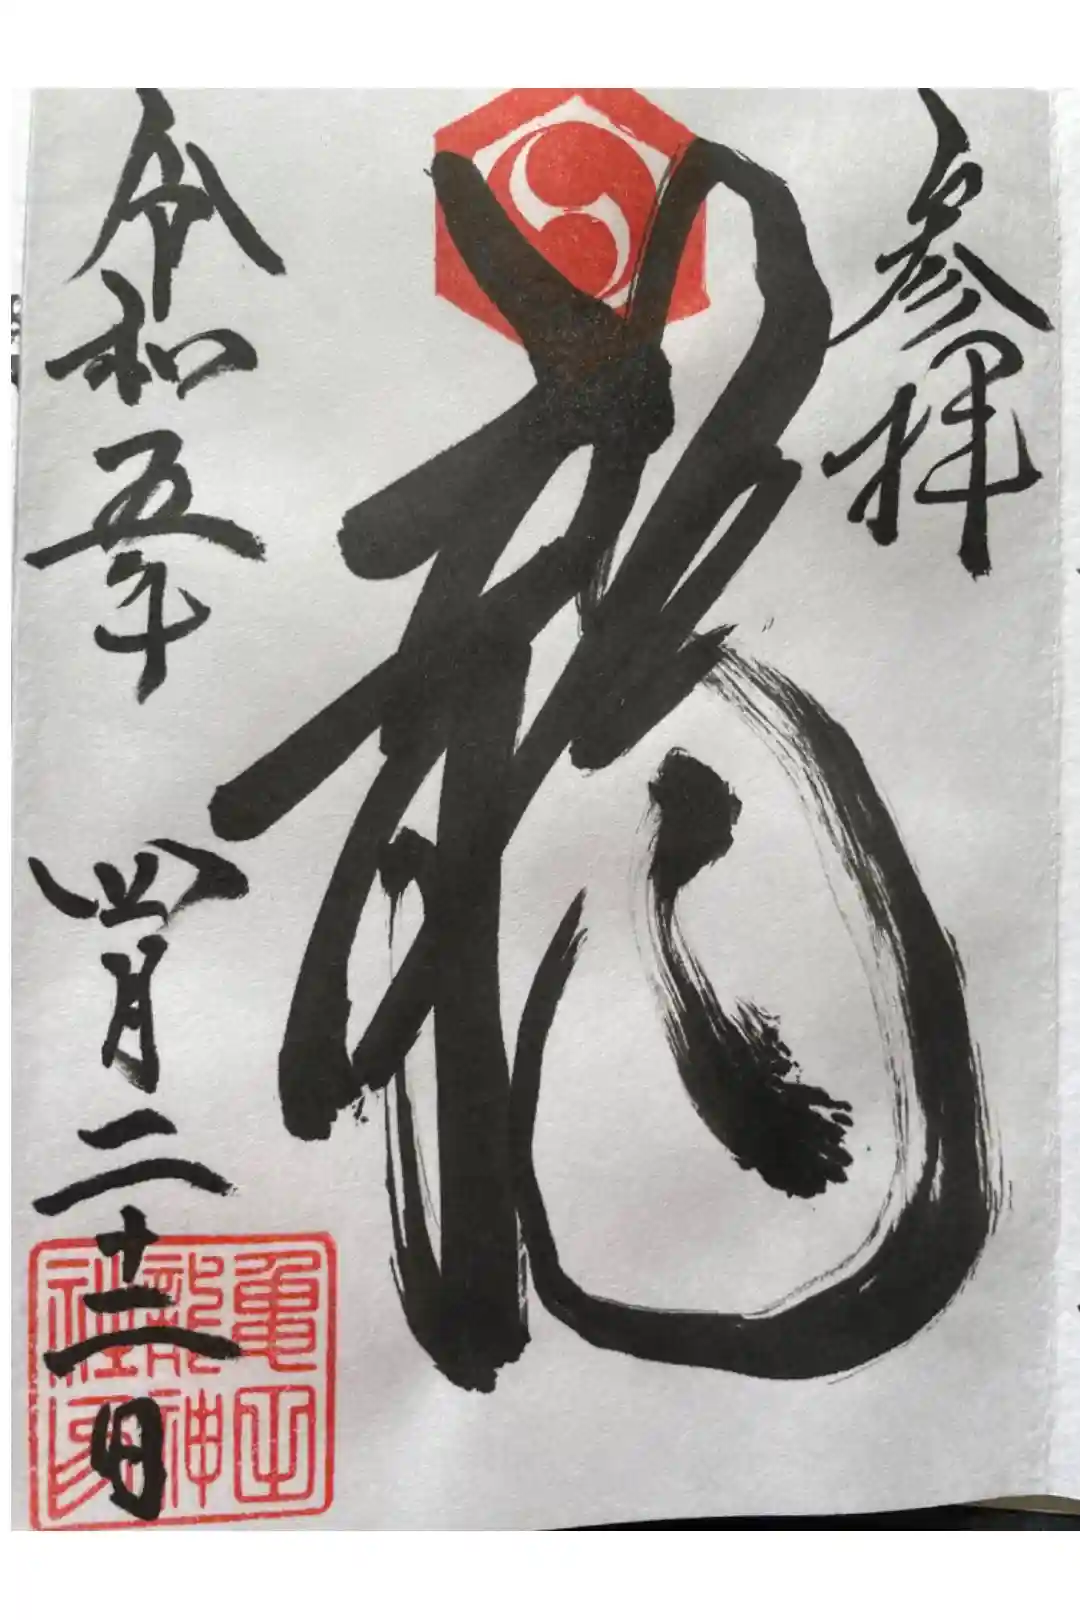 参拝
龍
令和五年 四月二十二日
亀山
龍神
社印